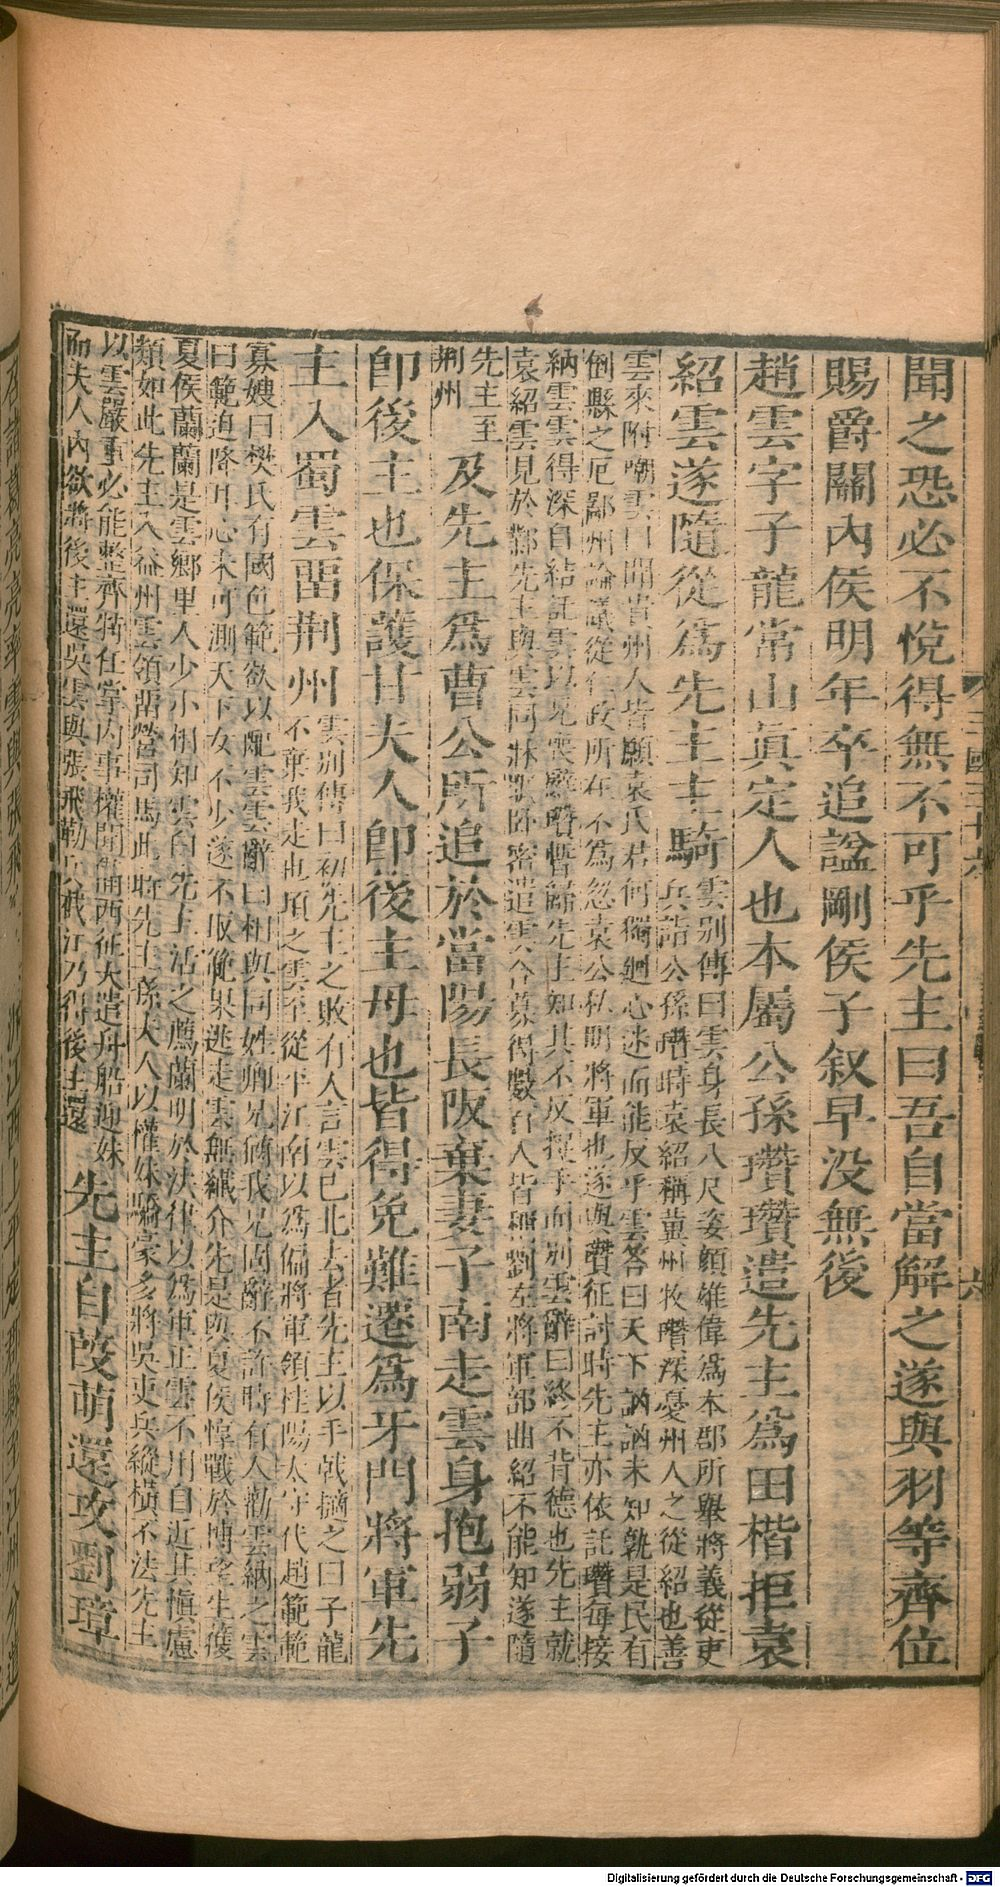 聞之恐必不悅得無不可乎先主曰吾自當解之遂與羽等齊位
賜爵關內侯明年卒追諡剛侯子叙早没無後
趙雲字子龍常山眞定人也本屬公孫瓚瓚遣先主爲田楷拒袁
紹雲遂隨從爲先主主騎
雲別傳曰雲身長八尺姿顏雄偉爲本郡所舉將義從吏
兵詣公孫瓚時袁紹稱冀州牧瓚深憂州人之從紹也善
雲來附嘲雲曰聞貴州人皆願袁氏君何獨迴心迷而能反乎雲答曰天下訩訩未知孰是民有
倒縣之厄鄙州論議從仁政所在不爲忽袁公私明將軍也遂與瓚征討時先主亦依託瓚每接
納雲雲得深自結託雲以兄喪辭瓚暫歸先主知其不反捉手而別雲辭曰終不背德也先主就
袁紹雲見於鄴先主與雲同牀眠卧密遣雲合募得數百人皆稱劉左將軍部曲紹不能知遂隨
先主至
荆州
及先主爲曹公所追於當陽長阪棄妻子南走雲身抱弱子
卽後主也保護甘夫人卽後主母也皆得免難遷爲牙門將軍先
主入蜀雲畱荆州
雲別傳曰初先主之敗有人言雲已北去者先主以手戟擿之曰子龍
不棄我走也頃之雲至從平江南以爲偏將軍領桂陽太守代趙範範
寡嫂曰樊氏有國色範欲以配雲雲辭曰相與同姓卿兄猶我兄固辭不許時有人勸雲納之雲
曰範迫降耳心未可測天下女不少遂不取範果逃走雲無纖介先是與夏侯惇戰於博望生獲
夏侯蘭蘭是雲鄉里人少小相知雲白先主活之薦蘭明於法律以爲軍正雲不用自近其愼慮
類如此先主入益州雲領畱營司馬此時先主孫夫人以權妹驕豪多將吳吏兵縱橫不法先主
以雲嚴重必能整齊特任掌內事權聞備西征大遣舟船迎妹
而夫人內欲將後主還吳雲與張飛勒兵截江乃得後主還
先主自葭萌還攻劉璋
Digitalisierung gefördert durch die Deutsche Forschungsgemeinschaft - DFG